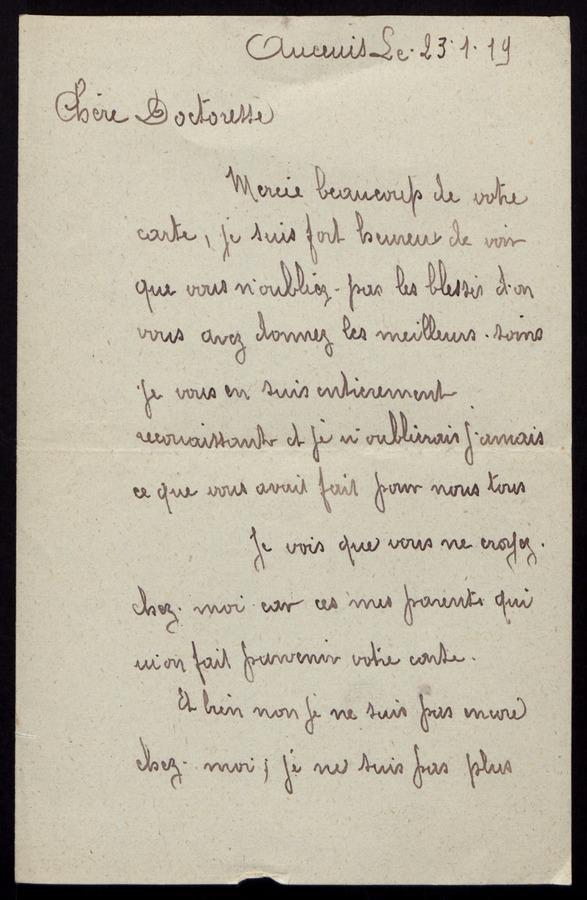 Ancenis Le 23.1.19
Chère Doctoresse
Mercie beaucoup de votre
carte, je suis fort heureux de voir
que vous n'oubliez-pas les blessés d'on
vous avez donnez les meilleurs soins
Je vous en suis entierement
reconaissant et je n'oublierais jamais
ce que vous avait fait pour nous tous
Je vois que vous me croyez
chez moi car ces mes parents qui
m'on fait parvenir votre carte.
Et bien non je ne suis pas encore
chez moi ; je ne suis pas plus